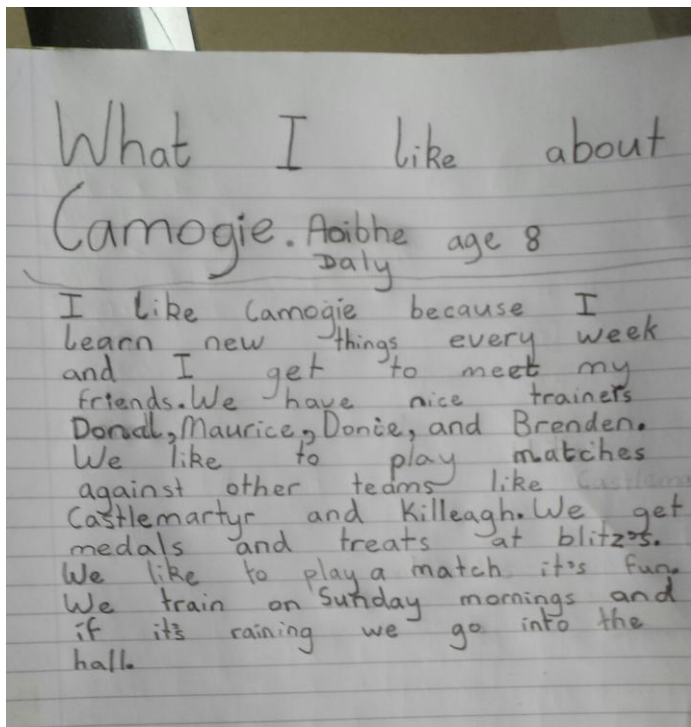 What I like about
Camogie. Aoibhe age 8
Daly
I like Camogie because I
learn new things every week
and I get to meet my
friends. We have nice trainers
Donal, Maurice, Donie, and Brenden.
We like to play matches
against other teams like
Castlemartyr and Killeagh. We get
medals and treats at blitz's.
We like to play a match it's fun.
We train on Sunday mornings and
if it's raining we go into the
hall.